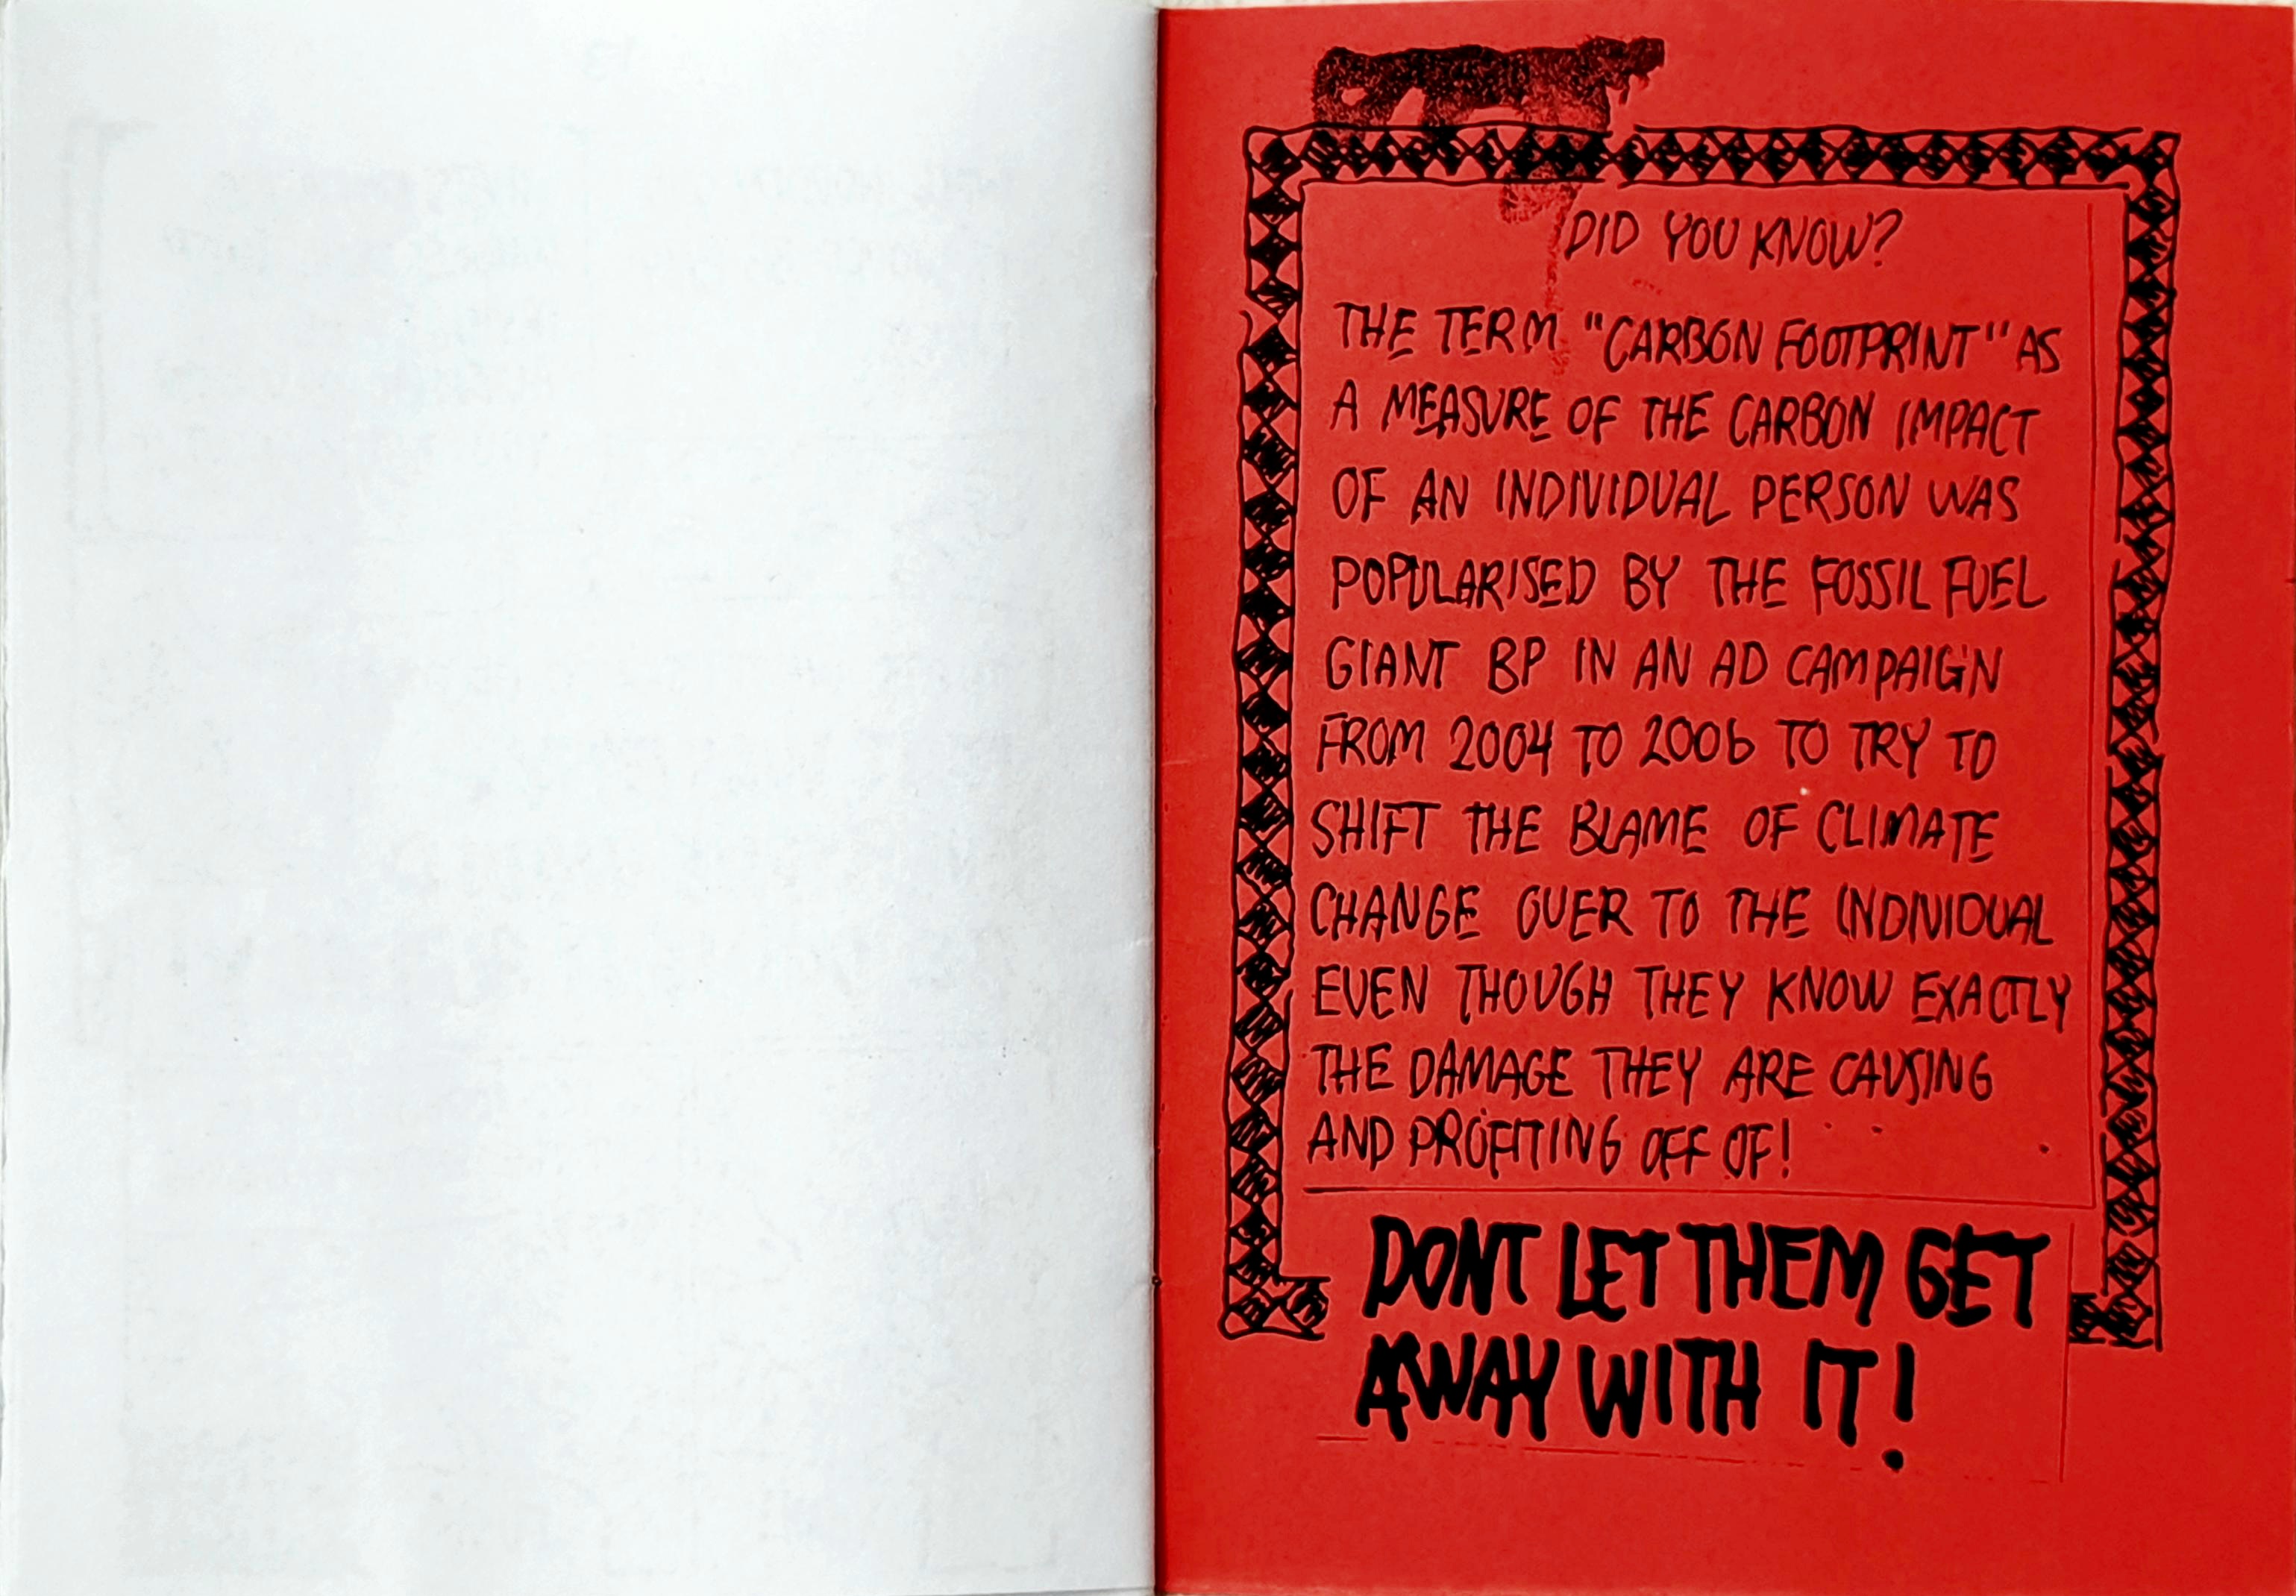 DID YOU KNOW?
THE TERM "CARBON FOOTPRINT" AS
A MEASURE OF THE CARBON IMPACT
OF AN INDIVIDUAL PERSON WAS
POPULARISED BY THE FOSSIL FUEL
GIANT BP IN AN AD CAMPAIGN
FROM 2004 TO 2006 TO TRY TO
SHIFT THE BLAME OF CLIMATE
CHANGE OVER TO THE INDIVIDUAL
EVEN THOUGH THEY KNOW EXACTLY
THE DAMAGE THEY ARE CAUSING
AND PROFITING OFF OF!
DONT LET THEM GET
AWAY WITH IT!